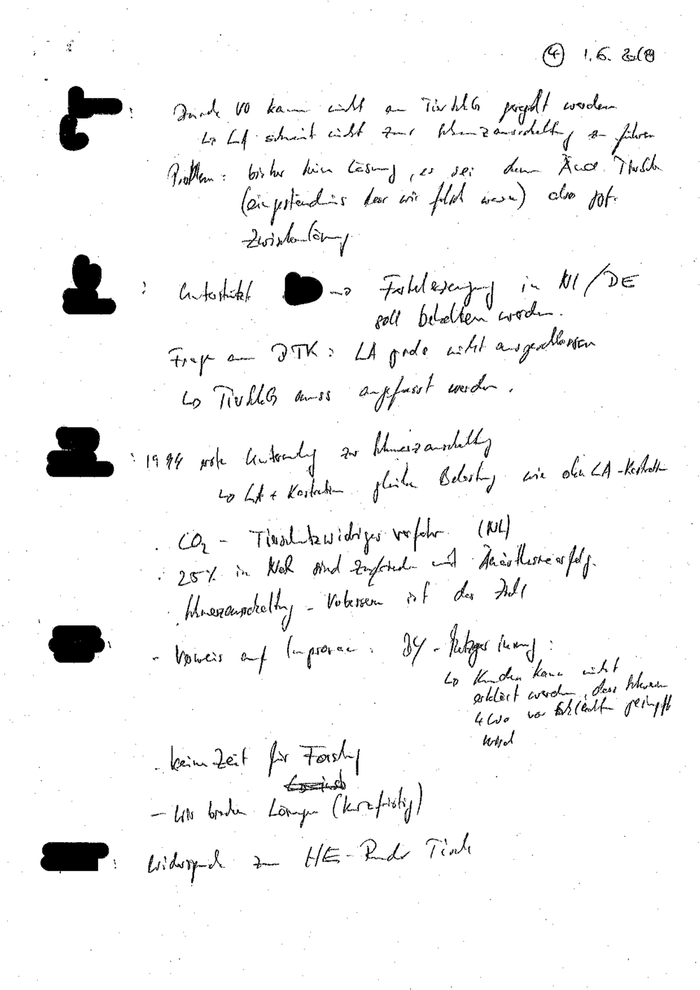 ④ 1.6.2018
: Durch VO kann nicht am TierSchG geregelt werden
↳ LA scheint nicht zur Schmerzausschaltung zu führen
Problem: bisher keine Lösung, es sei denn Änd. TierSchG
(eingeständnis dass wir falsch waren) also ggf.
Zwischenlösung
: Unterstützt → Ferkelerzeugung in NI/DE
soll behalten werden.
Frage an BTK: LA grade nicht ausgeschlossen
↳ TierSchG muss angefasst werden.
: 1994 erste zur Schmerzausschaltung
↳ LA + Kastration gleiche Belastung wie ohne LA-Kastration
· CO₂ - Tierschutzwidriges Verfahr. (NL)
· 25% in sind zufrieden mit Anästhesieerfolg.
· Schmerzausschaltung - Verbessern ist das Ziel
: - Verweis auf Improvac. BY - Metzger Innung:
↳ Kunden kann nicht
erklärt werden, dass Schwein
4 Wo vor Schlachten geimpft
wird
· keine Zeit für Forschung
- Wir brauchen Lösungen (kurzfristig)
: Widerspruch zum HE-Runder Tisch